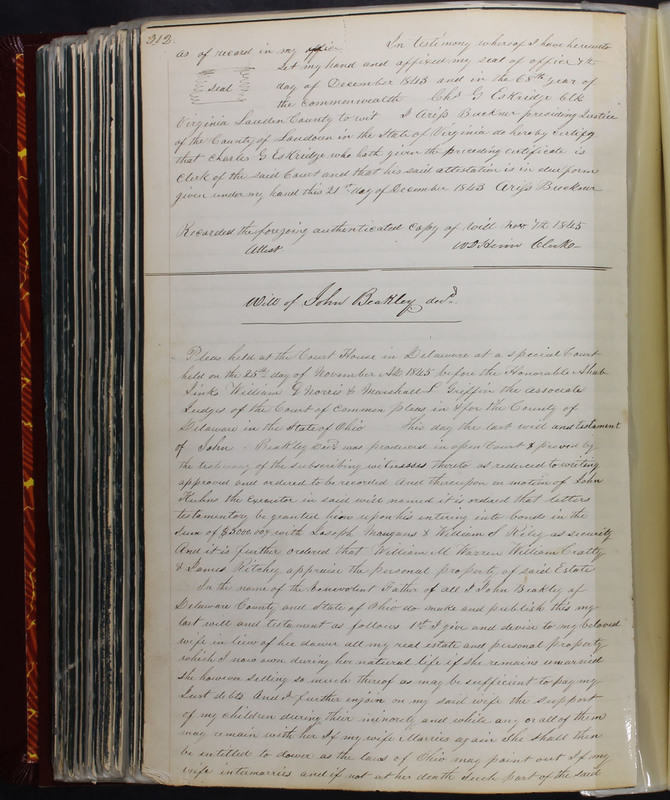 212.
as of record in my office In testimony whereof I have hereunto
set my hand and affixed my seal of office 7th
Seal
day of December 1843 and in the 68th year of
the commonwealth Chs G Eskridge Clk
Virginia Louden County to wit I Ariss Buckner presiding Justice
of the County of Loudoun in the State of Virginia do hereby Certify
that Charles G Eskridge who hath given the preceding certificate is
Clerk of the said Court and that his said attestation is in due form
given under my hand this 21st day of December 1843 Ariss Buckner
Recorded the foregoing authenticated copy of will Nov 7th 1845
Attest W D Heim Clerk
Will of John Beakley decd.
Pleas held at the Court House in Delaware at a special Court
held on the 25th day of November AD 1845 before the Honorable
William G Norris & Marshall L Griffin the associate
Judges of the Court of Common pleas in & for the County of
Delaware in the State of Ohio This day the last will and testament
of John Beakley decd was produced in open Court & proved by
the testimony of the subscribing witnesses thereto as reduced to writing
approved and ordered to be recorded And thereupon on motion of John
Kuhns the Executor in said will named it is ordered that letters
testamentary be granted him upon his entering into bonds in the
sum of $3000.00 with Joseph Mangans & William S Riley as security
And it is further ordered that William M Warren William Cratty
& James Ritchey appraise the personal property of said Estate
In the name of the benevolent Father of all I John Beakley of
Delaware County and State of Ohio do make and publish this my
last will and testament as follows 1st I give and devise to my beloved
wife in lieu of her dower all my real estate and personal property
which I now own during her natural life if she remains unmarried
she however selling so much thereof as may be sufficient to pay my
Just debts And I further injoin on my said wife the support
of my children during their minority and while any or all of them
may remain with her If my wife Marries again She shall then
be entitled to dower as the laws of Ohio may point out If my
wife intermarries and if not at her death Such part of the said